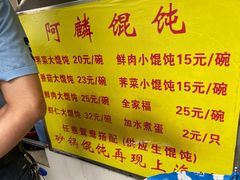 阿麟馄饨
荠菜大馄饨 20元/碗 鲜肉小馄饨 15元/碗
蘑菇大馄饨 23元/碗 荠菜小馄饨 15元/碗
鲜肉大馄饨 25元/碗 全家福 25元/碗
虾仁大馄饨 32元/碗 加水煮蛋 2元/只
任意鸳鸯搭配(供应生馄饨)
砂锅馄饨再现上